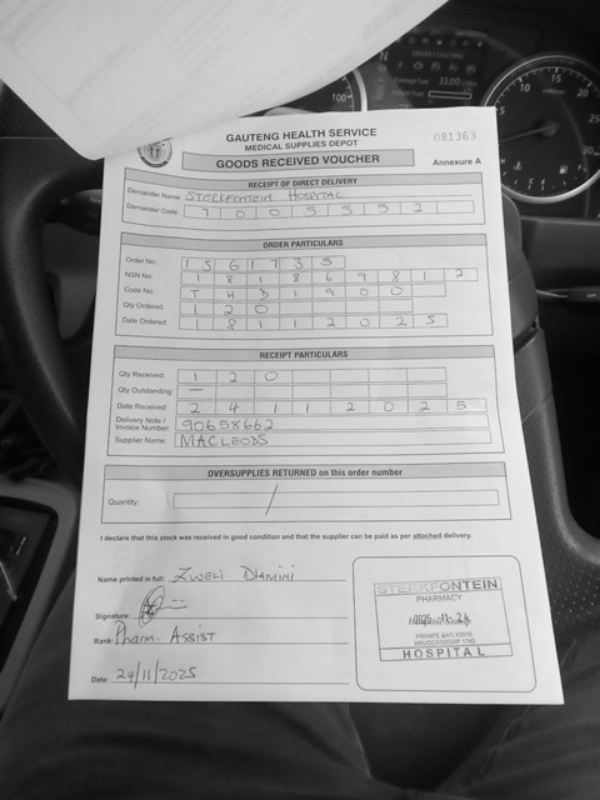 GAUTENG HEALTH SERVICE
MEDICAL SUPPLIES DEPOT
081363
GOODS RECEIVED VOUCHER
Annexure A
RECEIPT OF DIRECT DELIVERY
Demander Name: STERKFONTEIN HOSPITAL
Demander Code: 7 0 0 5 5 5 2
ORDER PARTICULARS
Order No: 1 5 6 1 7 3 5
NSN No: 1 8 1 8 6 9 8 1 2
Code No: T H D 1 9 0 0
Qty Ordered: 1 2 0
Date Ordered: 1 8 1 1 2 0 2 5
RECEIPT PARTICULARS
Qty Received: 1 2 0
Qty Outstanding: —
Date Received: 2 4 1 1 2 0 2 5
Delivery Note / Invoice Number: 90658662
Supplier Name: MACLEODS
OVERSUPPLIES RETURNED on this order number
Quantity: /
I declare that this stock was received in good condition and that the supplier can be paid as per attached delivery.
Name printed in full: ZWELI DLAMINI
Signature:
Rank: Pharm. ASSIST
Date: 24/11/2025
STERKFONTEIN
PHARMACY
2025 -11- 24
PRIVATE BAG X2010
KRUGERSDORP 1740
HOSPITAL
DRIVER COACHING
Average Fuel 11.00
100
5 10 15 20 25 30